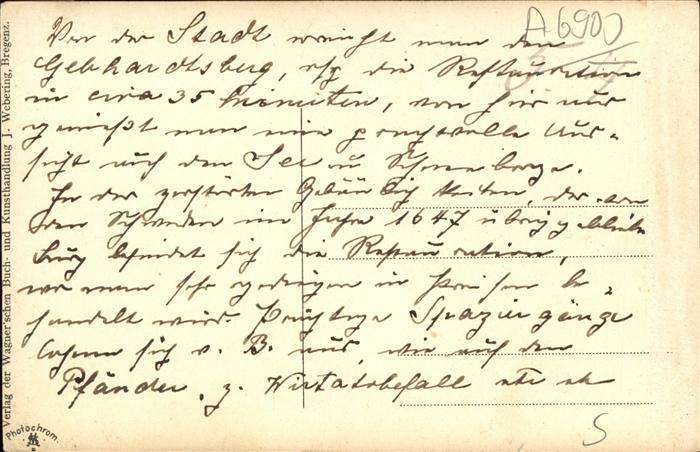 A 6900
Von der Stadt erreicht man den
Gebhardtsberg, resp. die Restauration
in circa 35 Minuten, von hier aus
genießt man eine prachtvolle Aus-
sicht auf den See u. Schneeberge.
In der zerstörten Gebäulichkeiten, der von
den Schweden im Jahre 1647 übrig gebliebe
Burg befindet sich die Restauration,
wo man sehr gediegen in Preisen be-
handelt wird. Prächtige Spaziergänge
lohnen sich v. B. aus, wie auf den
Pfänder, z. etc etc
S
Verlag der Wagner'schen Buch- und Kunsthandlung J. Webering, Bregenz.
Photochrom.